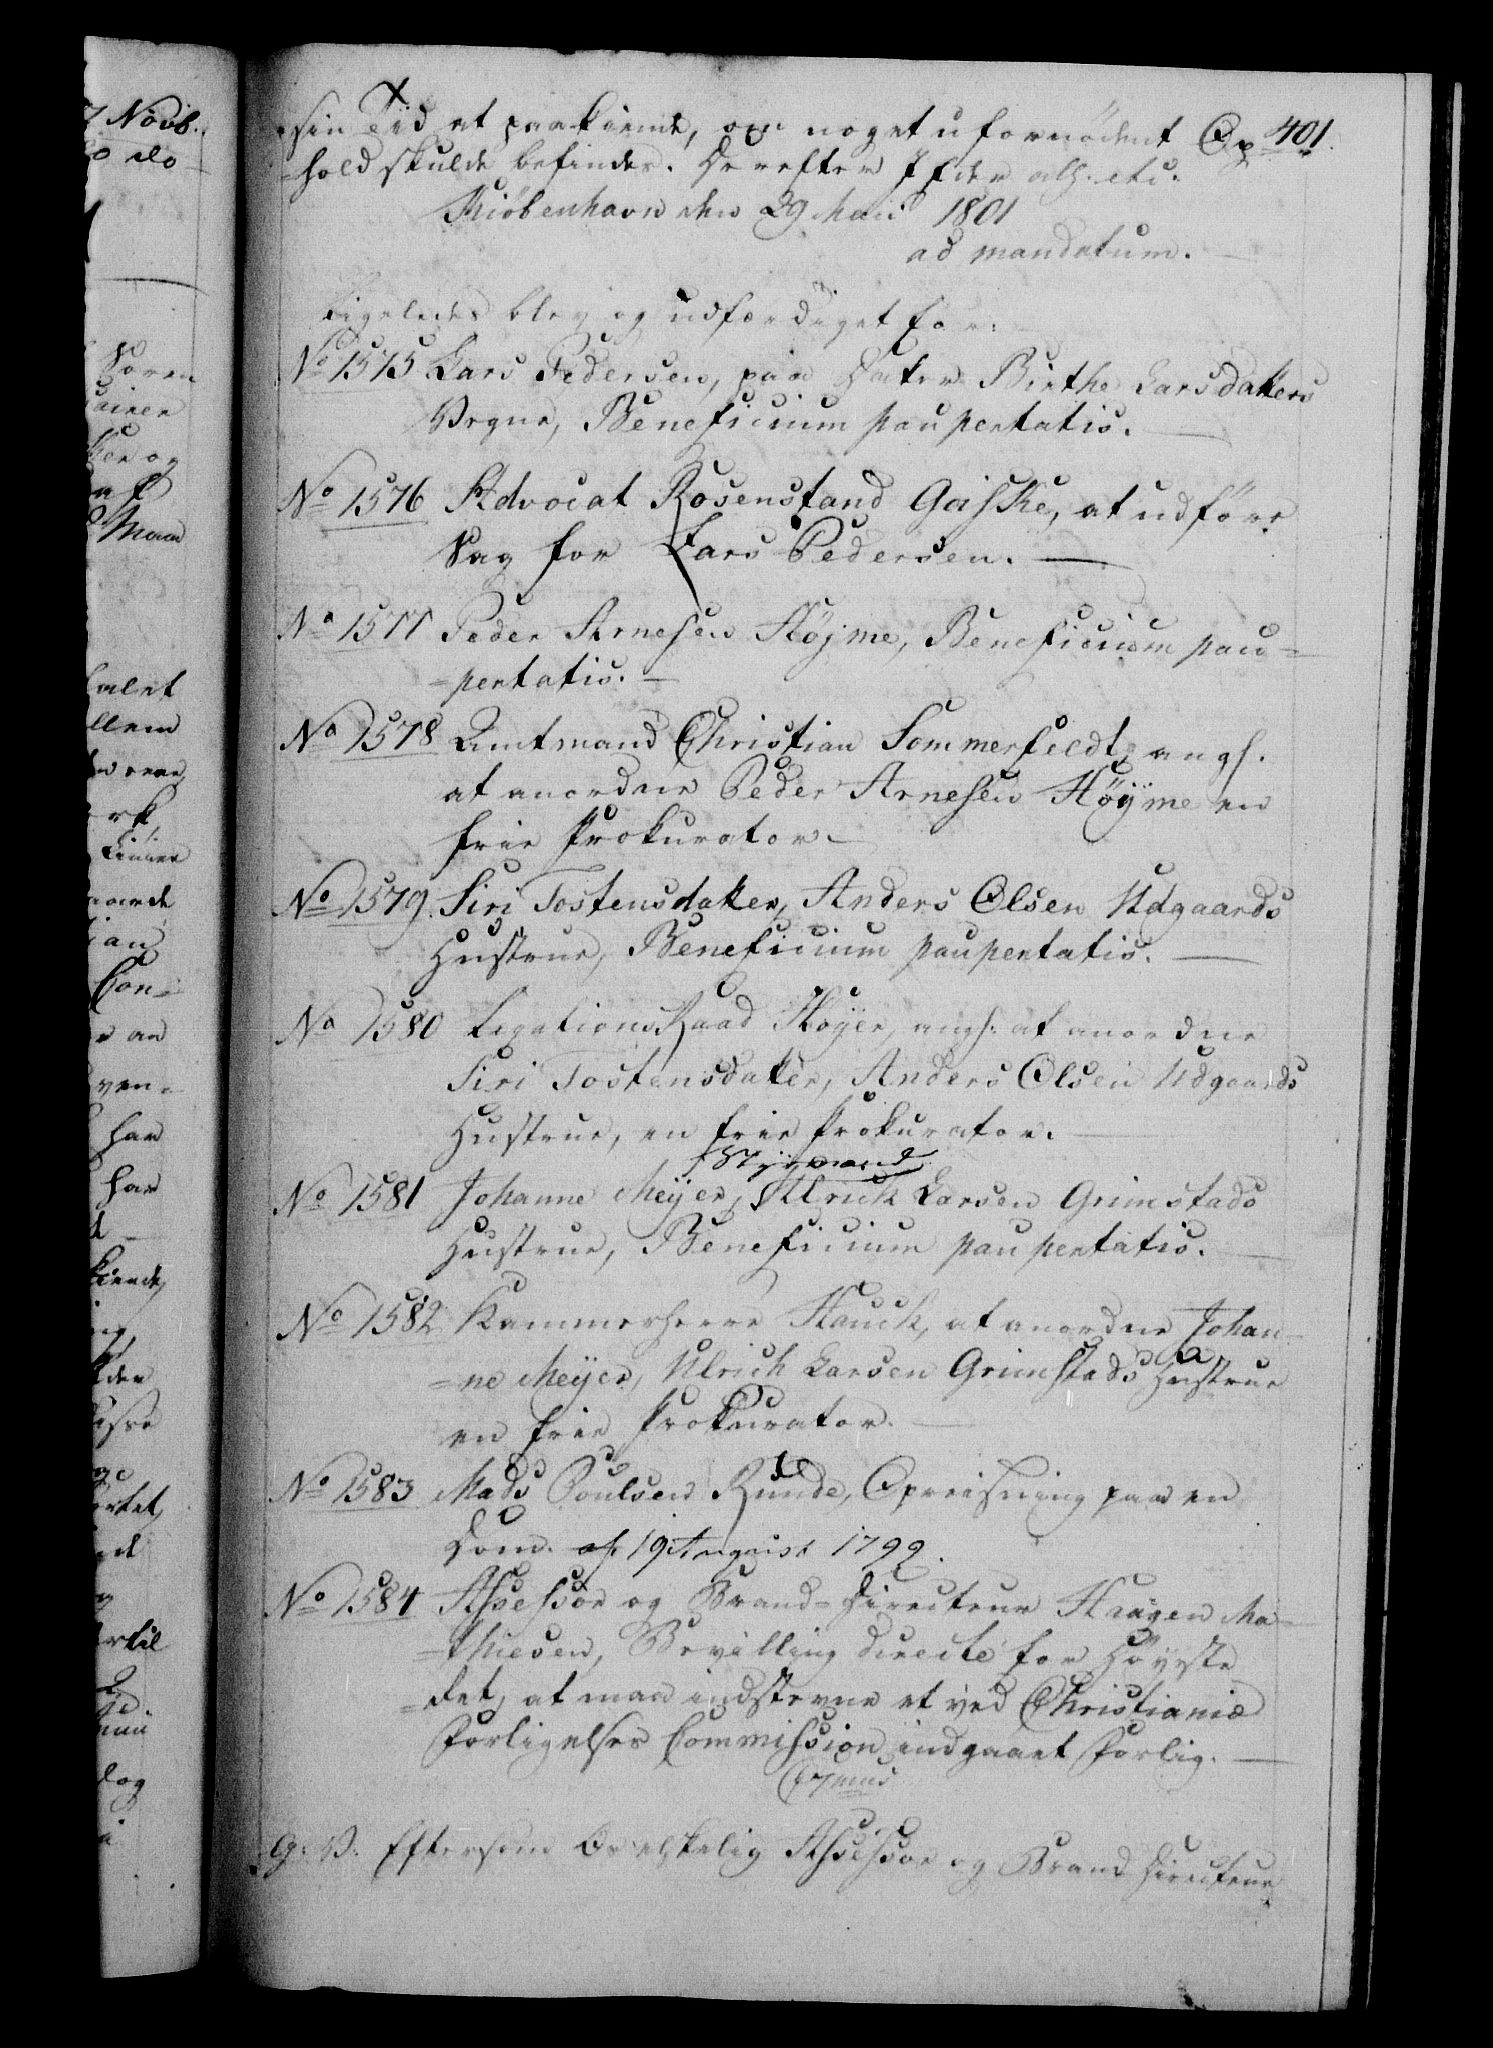 401.
sin Tid at paakiende, om noget ufornödent Op-
hold skulde befindes. Derefter I Eder alh. etc.
Kiöbenhavn den 29 Maii 1801
ad mandatum.
Ligeledes blev og udfærdiget for:
No 1575 Lars Pedersen, paa Datter Birthe Larsdatters
Vegne, Beneficium paupertatis.
No 1576 Advocat Rosenstand Goiske, at udföre
Sag for Lars Pedersen.
No 1577 Peder Arnesen Höjme, Beneficium pau-
pertatis.
No 1578 Amtmand Christian Sommerfeldt, angh.
at anordne Peder Arnesen Höyme en
frie Prokurator.
No 1579. Siri Tostensdatter, Anders Olsen Udgaards
Hustrue, Beneficium paupertatis.
No 1580 LegationsRaad Höyer, angh. at anordne
Siri Tostensdatter, Anders Olsen Udgaards
Hustrue, en frie Prokurator.
Styrmand
No 1581 Johanne Meÿer, Ulrich Larsen Grimstads
Hustrue, Beneficium paupertatis.
No 1582 Kammerherre Hauch, at anordne Johan-
ne Meÿer, Ulrich Larsen Grimstads Hustrue
en frie Prokurator.
No 1583 Mads Poulsen Runde, Opreisning paa en
Dom af 19 August 1799.
No 1584 Assessor og Brand-Directeur Haagen Ma-
thiesen, Bevilling directe for Höyeste
det, at maa indstevne et ved Christiania
Forligelses Commission indgaaet Forlig.
G: V: Eftersom Os elskelig Assessor og Brand Directeur